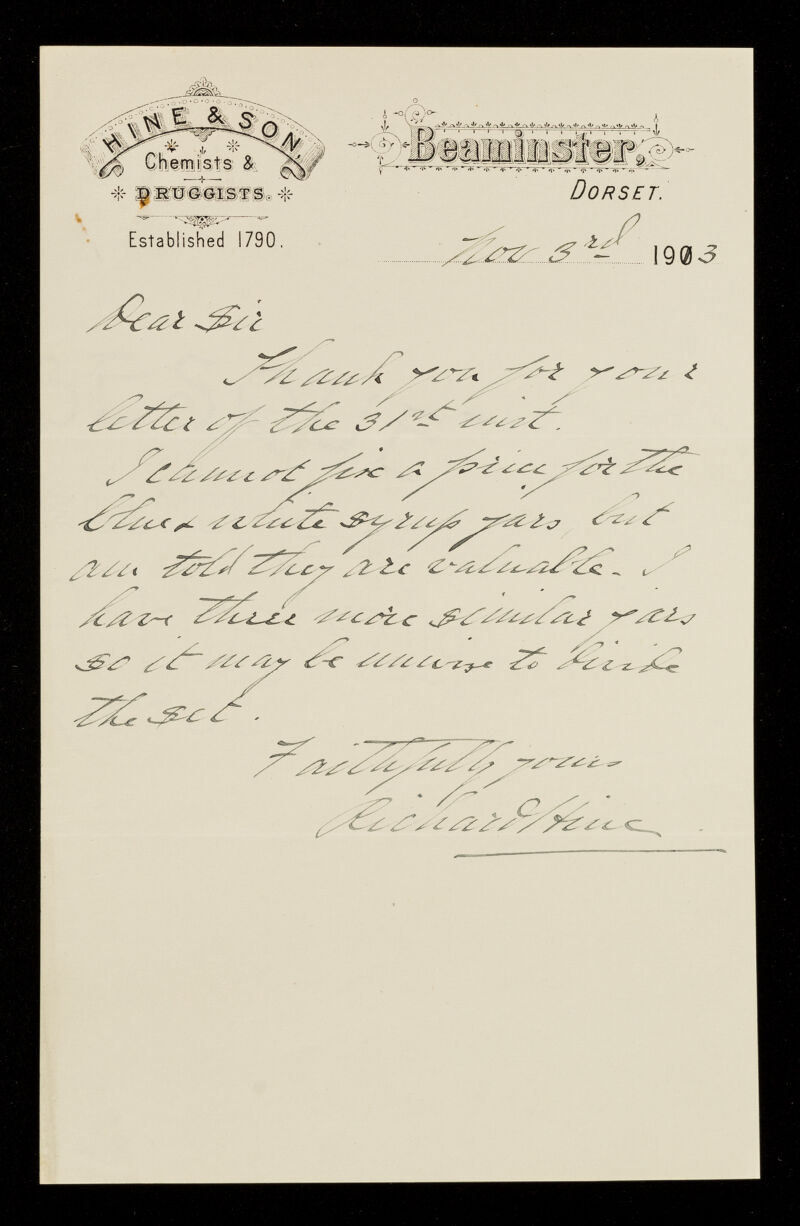 HINE & SON,
Chemists &
DRUGGISTS.
Established 1790.
Beaminster,
DORSET.
Nov 3rd 1903
Dear Sir
Thank you for your
letter of the 31st inst.
I cannot fix a price for the
blue & white syrup jars, but
am told they are valuable - I
have three more similar jars
so it may be unwise to divide
the set.
Faithfully yours
Richard Hine